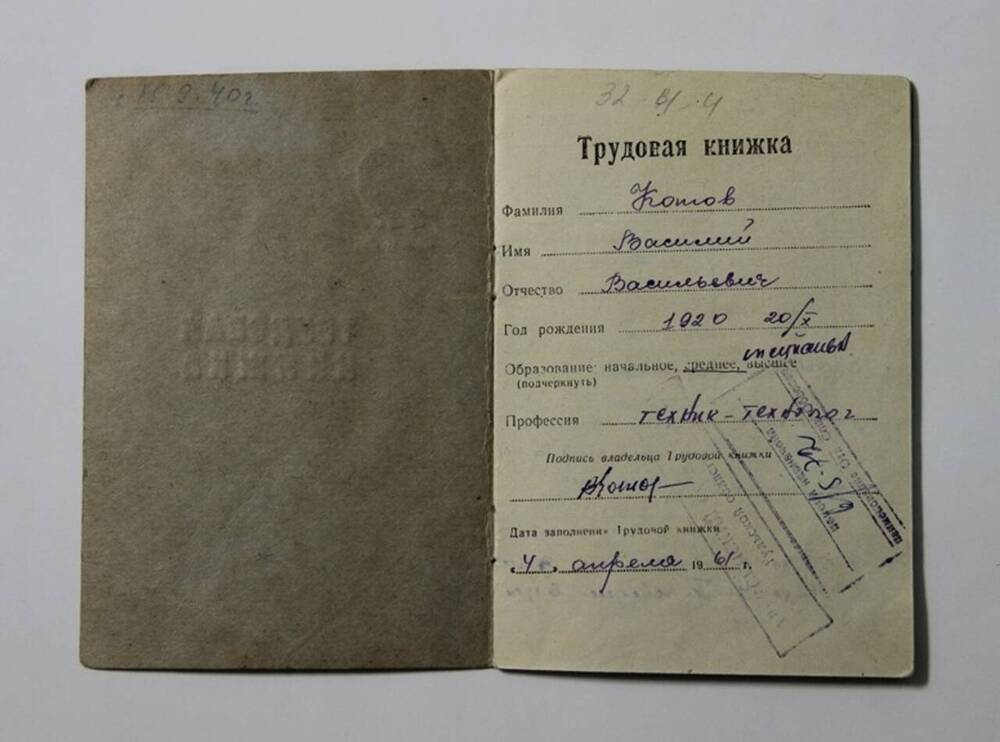 32-61-4
Трудовая книжка
Фамилия Котов
Имя Василий
Отчество Васильевич
Год рождения 1920 20/X
Образование: начальное, среднее, высшее
(подчеркнуть)
Профессия техник-технолог
Подпись владельца Трудовой книжки
Дата заполнения Трудовой книжки
"4" апреля 1961 г.